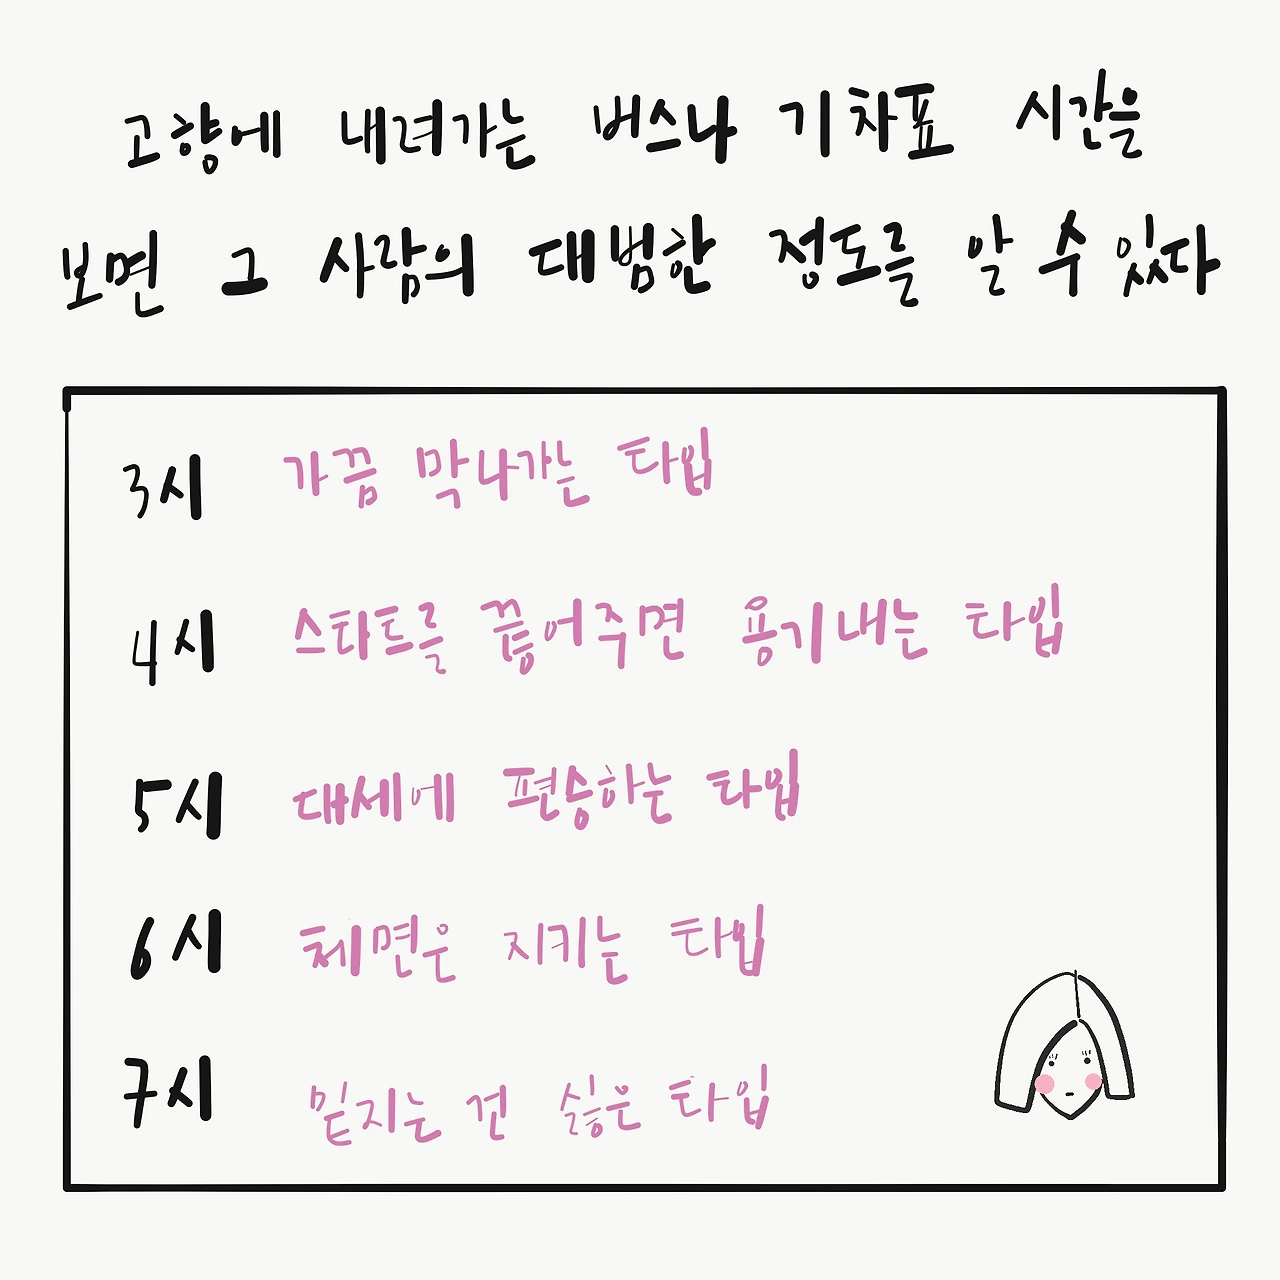 고향에 내려가는 버스나 기차표 시간을
보면 그 사람의 대범한 정도를 알 수 있다
3시 가끔 막나가는 타입
4시 스타트를 끊어주면 용기내는 타입
5시 대세에 편승하는 타입
6시 체면은 지키는 타입
7시 밑지는 건 싫은 타입